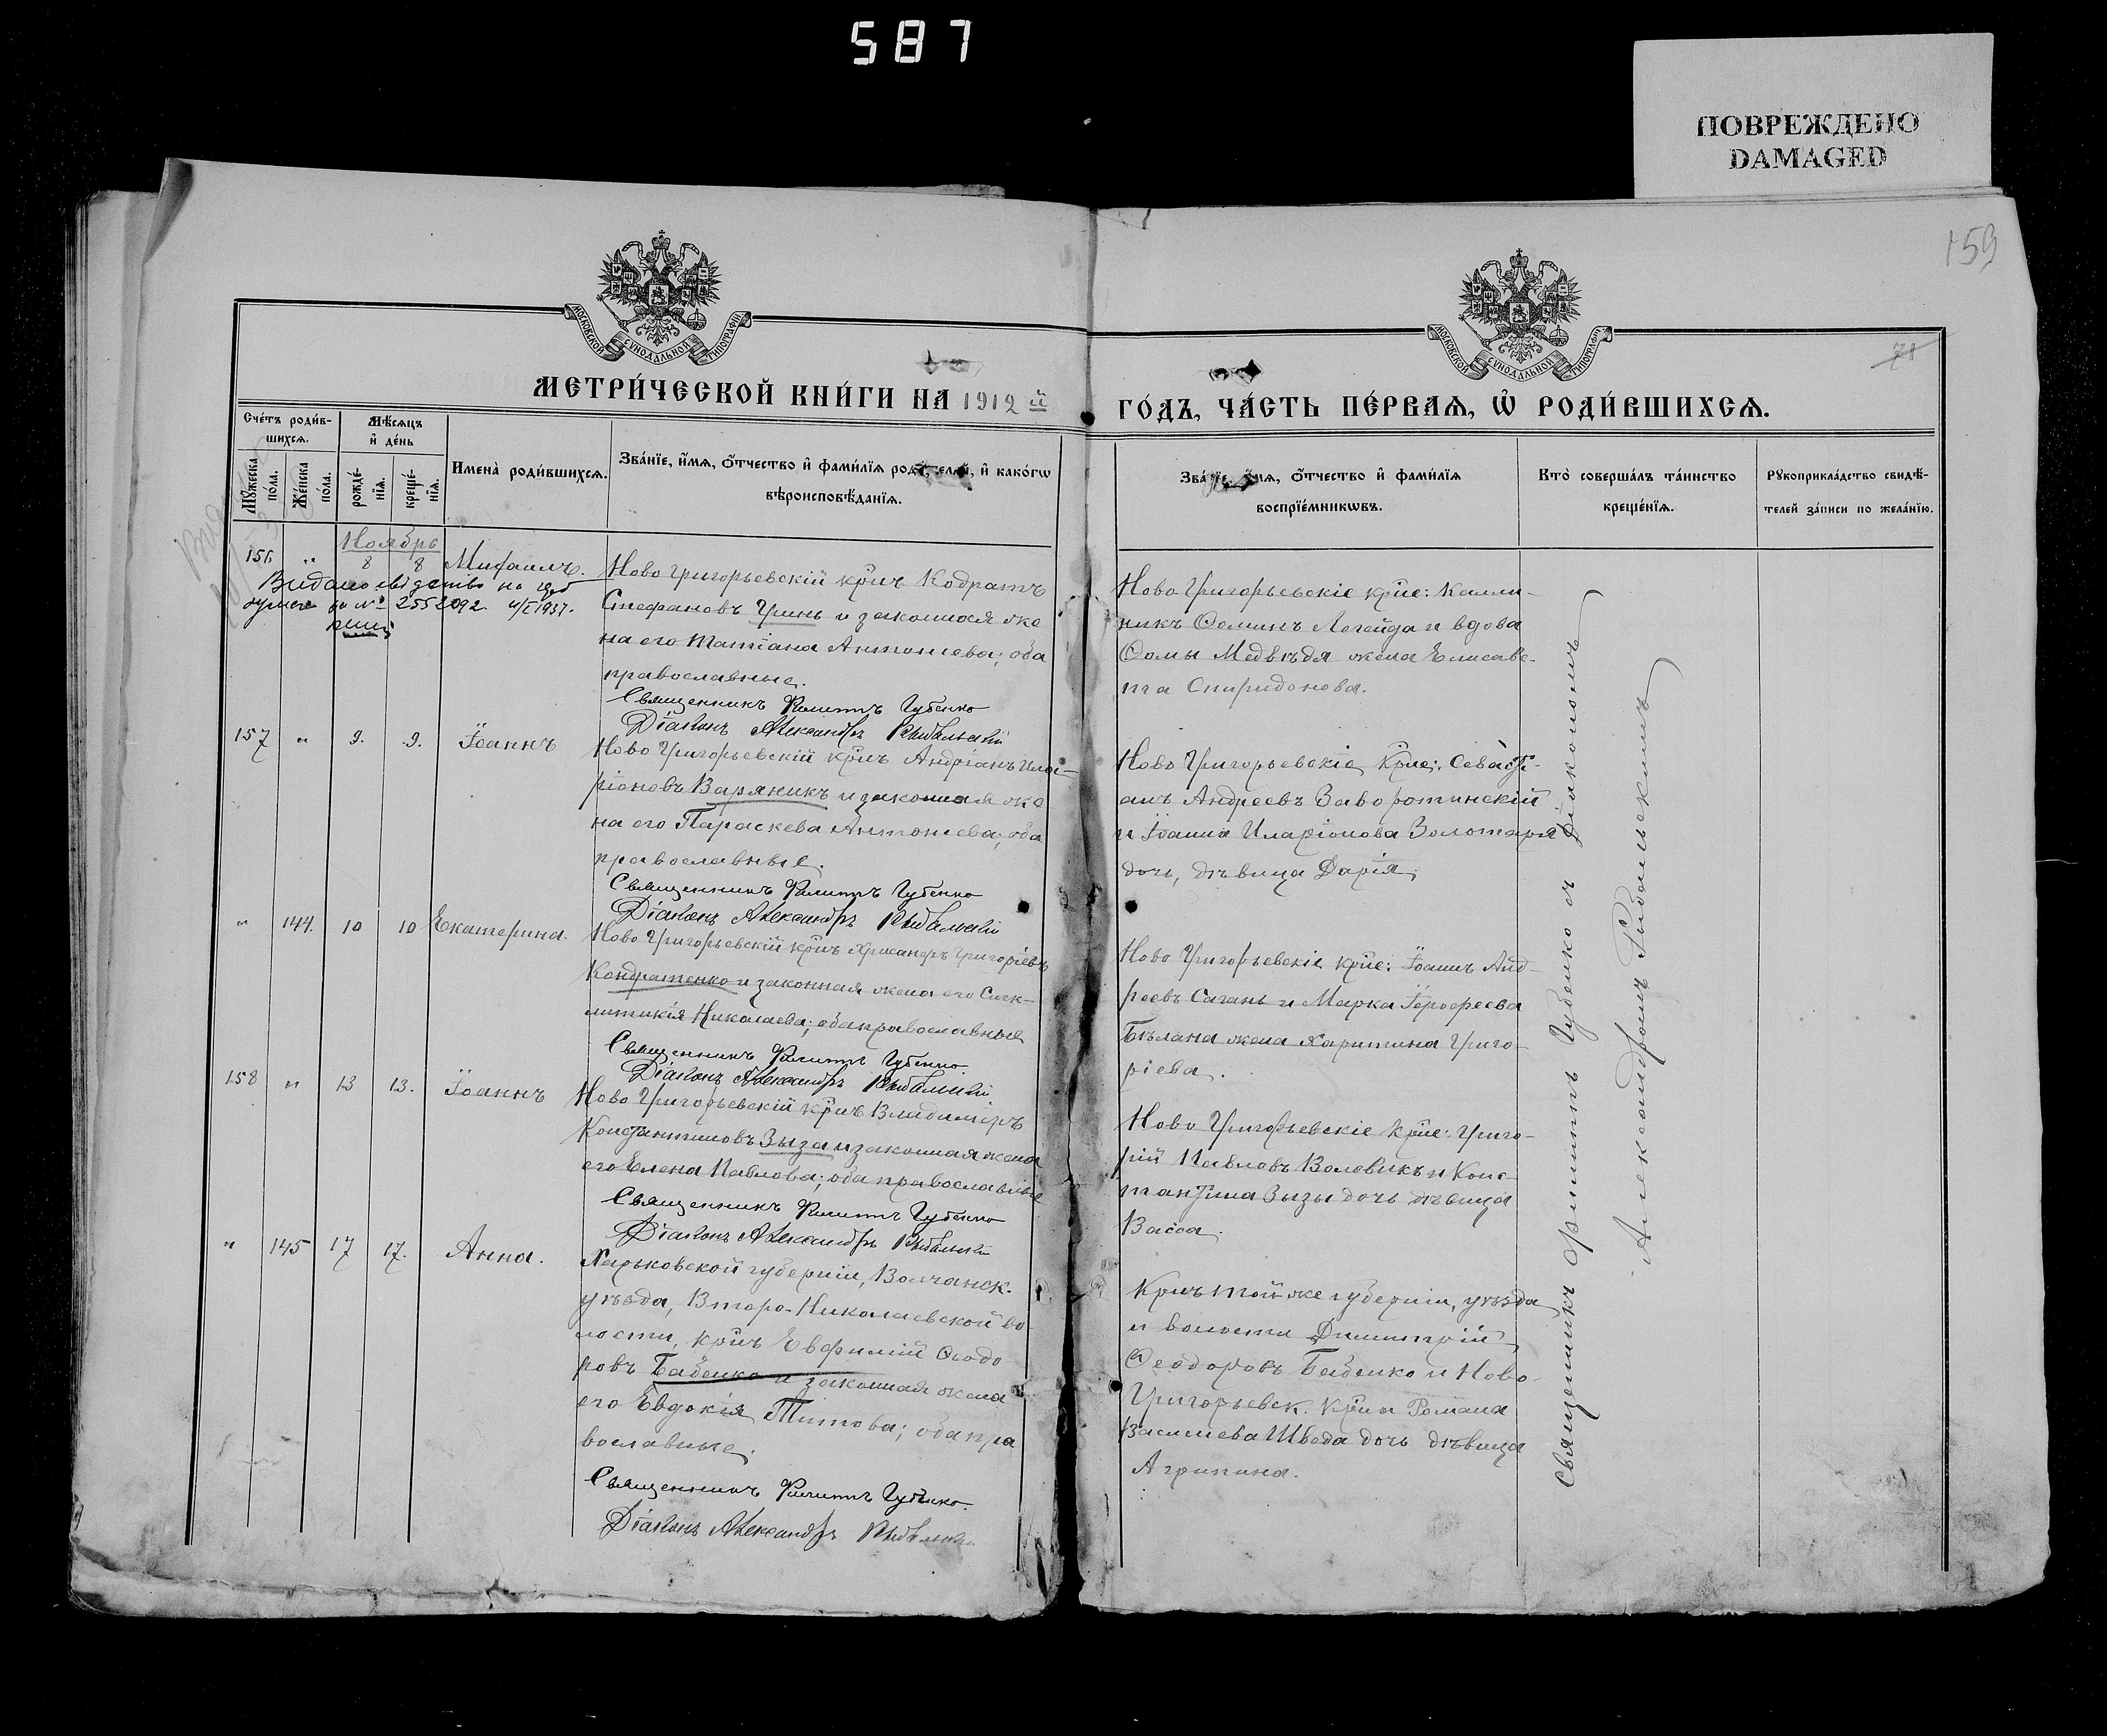 587
ПОВРЕЖДЕНО
DAMAGED
159
71
МОСКОВСКОЙ СѴНОДАЛЬНОЙ ТИПОГРАФІИ
МОСКОВСКОЙ СѴНОДАЛЬНОЙ ТИПОГРАФІИ
МЕТРИ́ЧЕСКОЙ КНИ́ГИ НА 1912 й
ГО́ДЪ, ЧА́СТЬ ПЕ́РВАѦ, Ѡ҆ РОДИ́ВШИХСѦ.
Сче́тъ роди́в-
шихсѧ.
Мѣ́сѧцъ
и҆ де́нь
Мꙋ́жеска
по́ла.
Же́нска
по́ла.
рожде́-
нїѧ.
креще́-
нїѧ.
Имена̀ роди́вшихсѧ.
Зва́нїе, и҆́мѧ, ѻ҆́тчество и҆ фами́лїѧ роди́телей, и҆ како́гѡ
вѣроисповѣ́данїѧ.
Зва́нїе, и҆́мѧ, ѻ҆́тчество и҆ фами́лїѧ
воспрїе́мникѡвъ.
Кто̀ соверша́лъ та́инство
креще́нїѧ.
Рꙋкоприкла́дство свидѣ́-
телей за́писи по жела́нїю.
Ноябрь
156 " 8 8 Михаилъ.
Ново Григорьевскій крнъ Кодратъ
Стефановъ Гринь и законная же
на его Татіана Антониева; оба
православные.
Священникъ Филиппъ Губенко
Діаконъ Александръ Рыбальскій
Ново Григорьевскіе крне: Калли-
никъ Ѳоминъ Легейда и вдова
Ѳомы Медвѣдя жена Елисаве-
та Спиридонова.
Видано на
за № 2552092 1937.
157 " 9. 9. Іоаннъ
Ново Григорьевскій крнъ Андріанъ Ила-
ріоновъ Варяникъ и законная же
на его Параскева Антониева; оба
православные.
Священникъ Филиппъ Губенко
Діаконъ Александръ Рыбальскій
Ново Григорьевскіе крне: Севасті-
анъ Андреевъ Заворотинскій
и Іоанна Иларіонова Золотаря
дочь, дѣвица Дарія.
" 144. 10 10 Екатерина.
Ново Григорьевскій крнъ Хрисанфъ Григоріевъ
Кондратенко и законная жена его Синк-
литикія Николаева; оба православные
Священникъ Филиппъ Губенко
Діаконъ Александръ Рыбальскій
Ново Григорьевскіе крне: Іоаннъ Анд-
реевъ Сагань и Марка Іерофеева
Бѣлана жена Харитина Григо-
ріева.
158 " 13 13. Іоаннъ
Ново Григорьевскій крнъ Владиміръ
Константиновъ Зыза и законная жена
его Елена Павлова; оба православные
Священникъ Филиппъ Губенко
Діаконъ Александръ Рыбальскій
Ново Григорьевскіе крне: Григо-
рій Павловъ Воловикъ и Конс-
тантина Зызы дочь дѣвица
Васса.
" 145 17 17. Анна.
Харьковской губерніи, Волчанск.
уѣзда, Второ-Николаевской во-
лости, крнъ Евфимій Ѳеодо-
ровъ Бабенко и законная жена
его Евдокія Титова; оба пра
вославные.
Священникъ Филиппъ Губенко.
Діаконъ Александръ Рыбальскій
Крнъ той же губерніи, уѣзда
и волости Димитрій
Ѳеодоровъ Бабенко и Ново-
Григорьевск. крна Романа
Василиева Шведа дочь дѣвица
Агрипина.
Священникъ Филиппъ Губенко съ діакономъ
Александромъ Рыбальскимъ